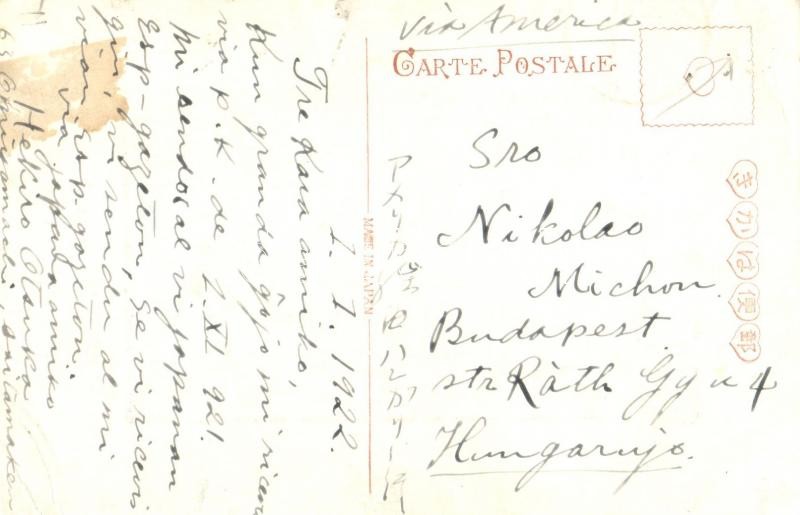 via America
CARTE POSTALE
きかは便郵
Sro
Nikolao
Michon
Budapest
str Ràth Gy u 4
Hungarujo.
アメリカ経由ハンガリー行
MADE IN JAPAN
1. 1. 1922.
Tre Kara amiko,
Kun granda ĝojo mi ricevi
via p.k. de 2. XI 921.
Mi sendos al vi japanan
Esp-gazeton, Se vi ricevis
ĝin, vi sendu al mi
vian esp. gazeton.
via japana amiko
Hekiro Otsuka
63 Omiyamachi, saitamaken